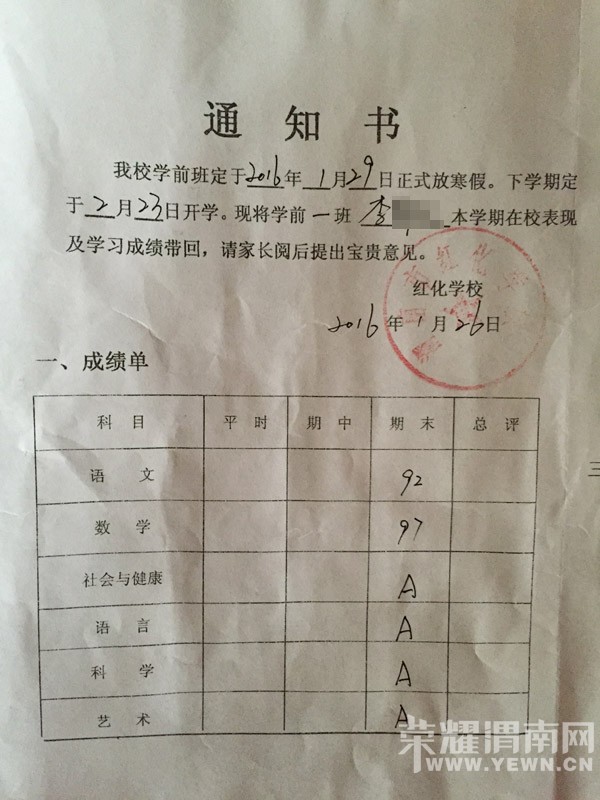 通 知 书
我校学前班定于2016年1月29日正式放寒假。下学期定
于2月23日开学。现将学前一班 李 本学期在校表现
及学习成绩带回，请家长阅后提出宝贵意见。
红化学校
2016年1月26日
一、成绩单
科 目 平 时 期 中 期 末 总 评
语 文 92
数 学 97
社会与健康 A
语 言 A
科 学 A
艺 术 A
三
荣耀渭南网
WWW.YEWN.CN